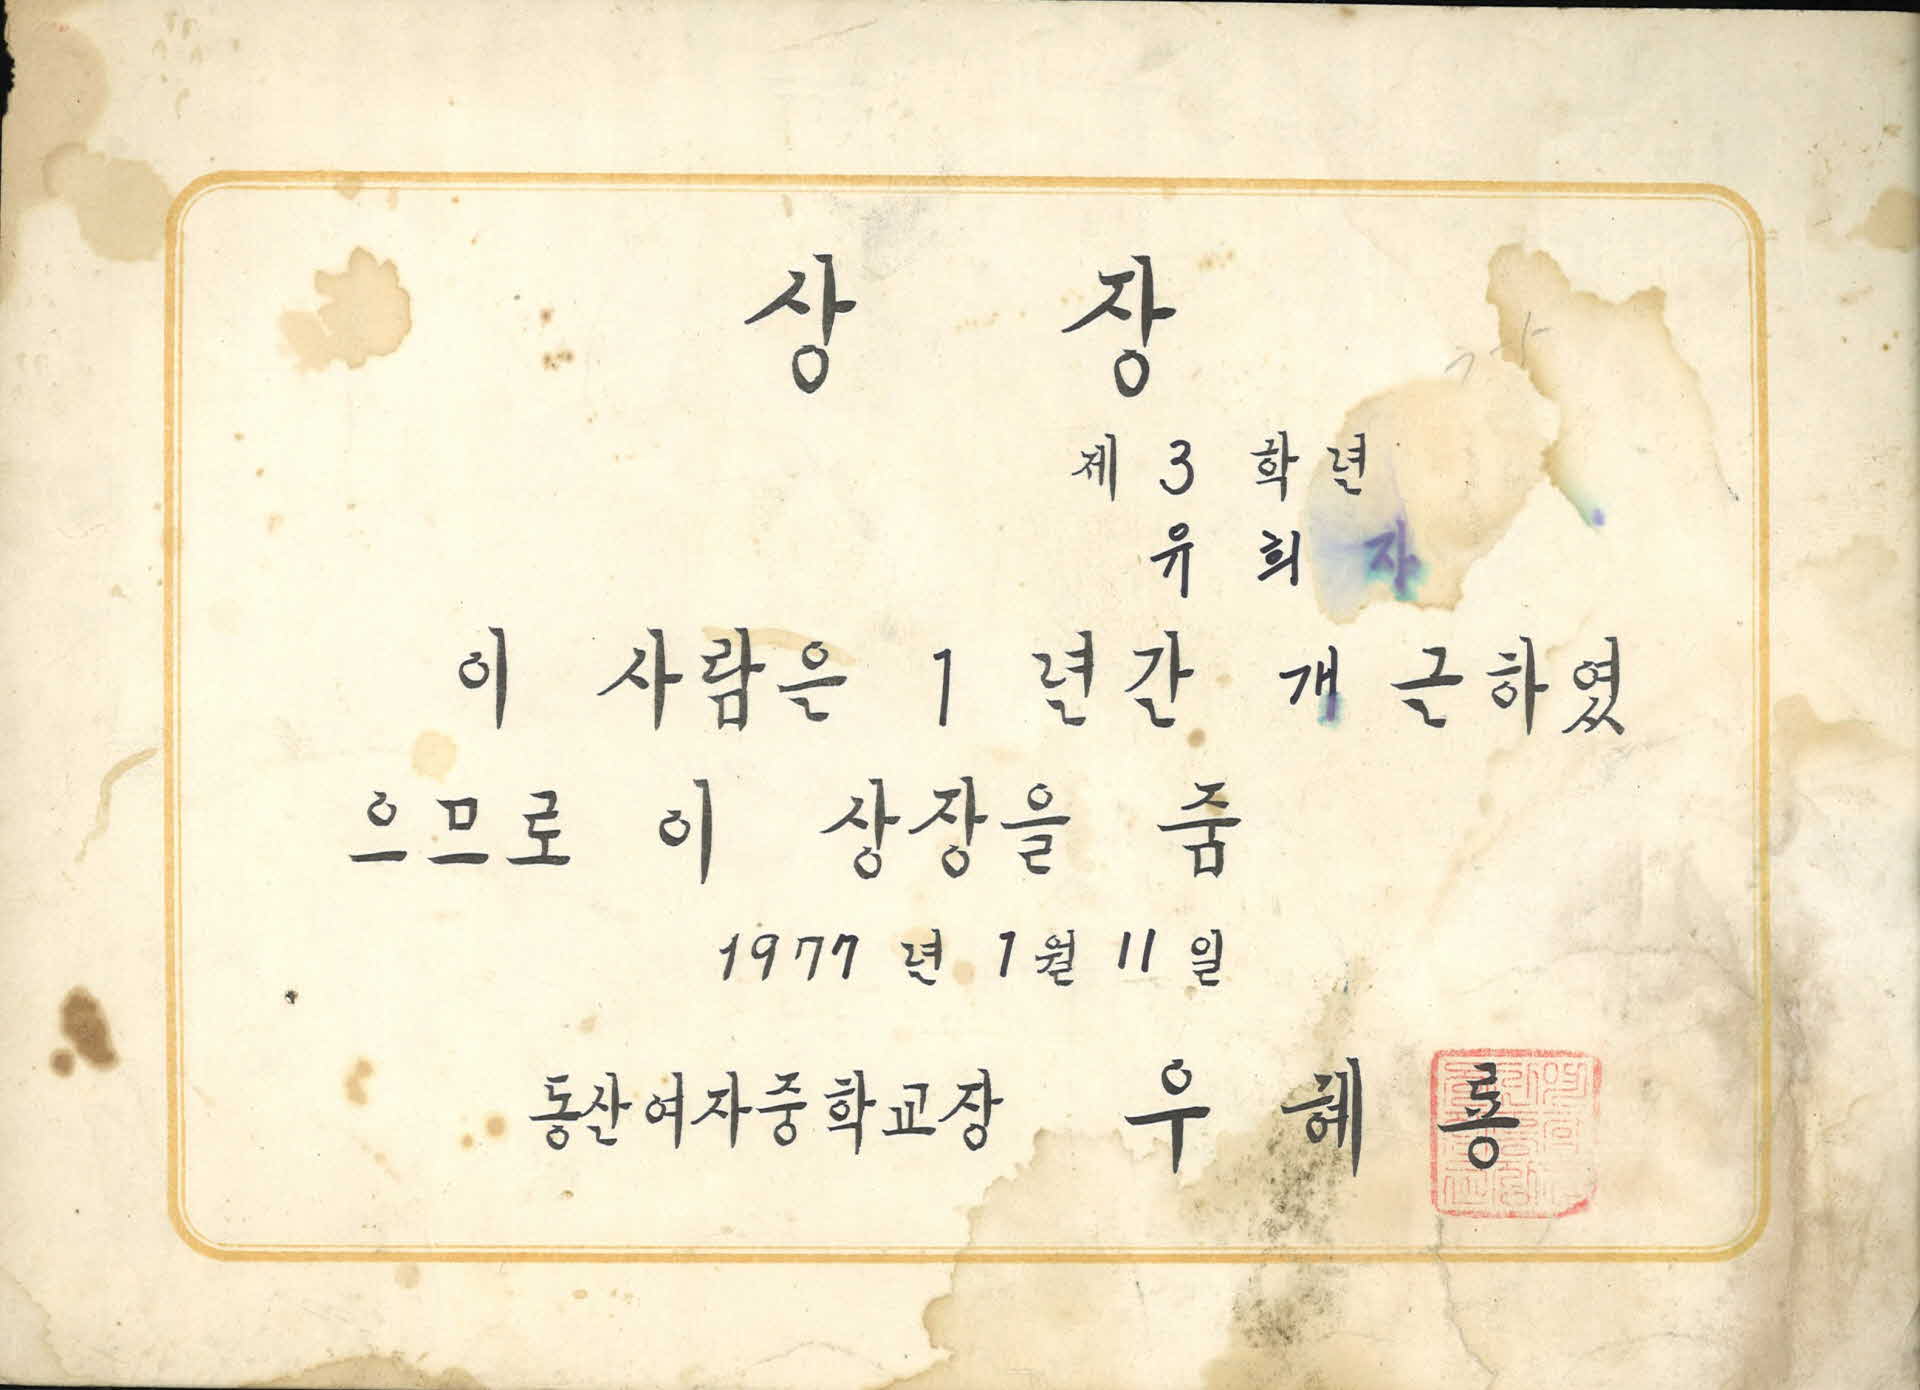 상 장
제 3 학년
유 희 자
이 사람은 1 년간 개근하였
으므로 이 상장을 줌
1977 년 1월 11 일
동산여자중학교장 우 혜 롱